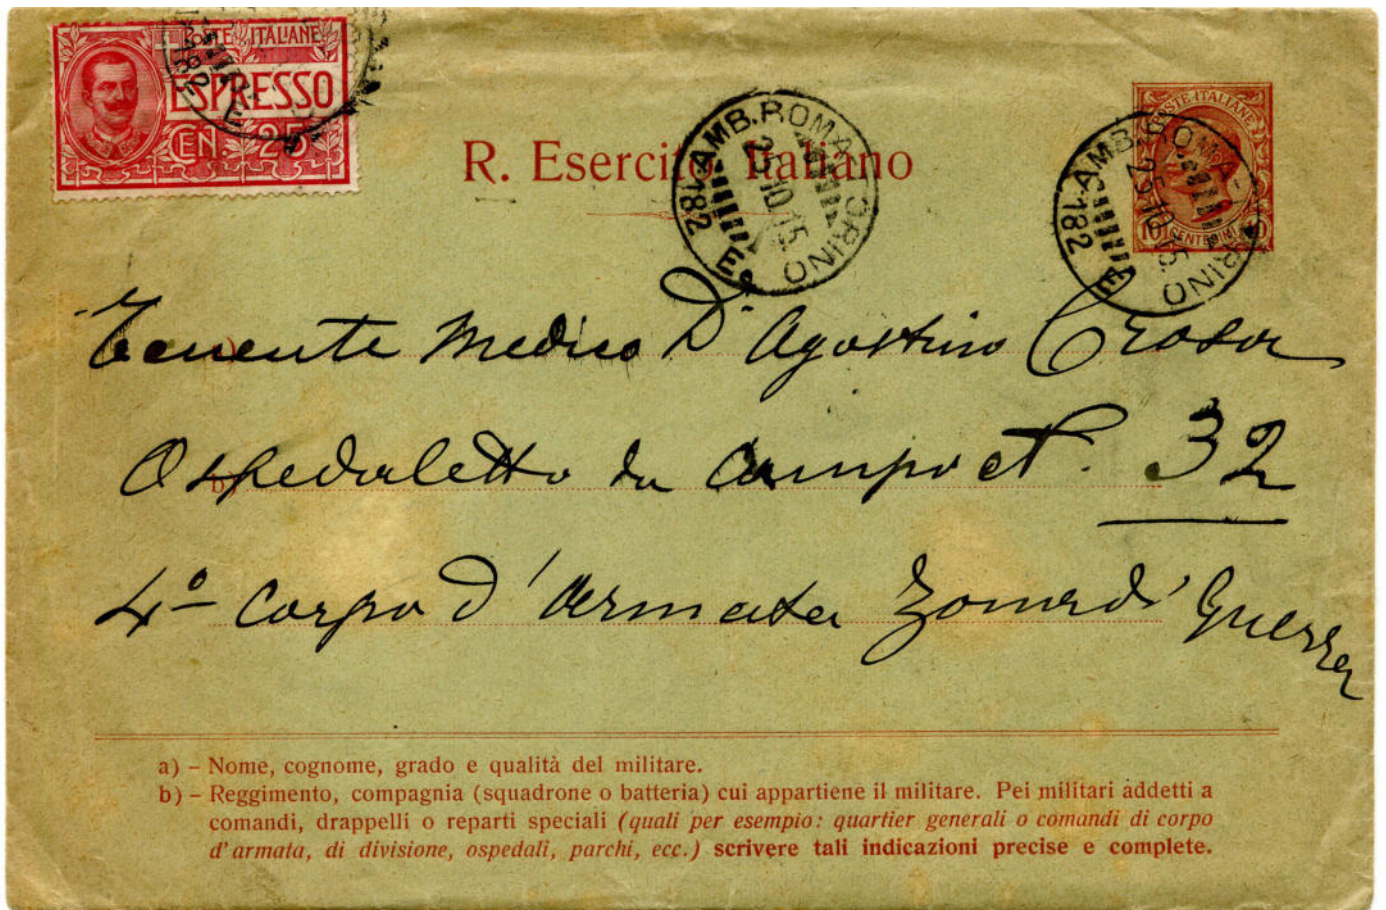 POSTE ITALIANE
ESPRESSO
CEN. 25
R. Esercito Italiano
182 AMB. ROMA-TORINO E
25.10.15.
POSTE ITALIANE
10 CENTESIMI 10
182 AMB. ROMA-TORINO E
25.10.15.
Tenente Medico Dr Agostino Crosa
a)
Ospedaletto da Campo N. 32
b)
4º Corpo d'Armata Zona di Guerra
a) – Nome, cognome, grado e qualità del militare.
b) – Reggimento, compagnia (squadrone o batteria) cui appartiene il militare. Pei militari addetti a
comandi, drappelli o reparti speciali (quali per esempio: quartier generali o comandi di corpo
d'armata, di divisione, ospedali, parchi, ecc.) scrivere tali indicazioni precise e complete.